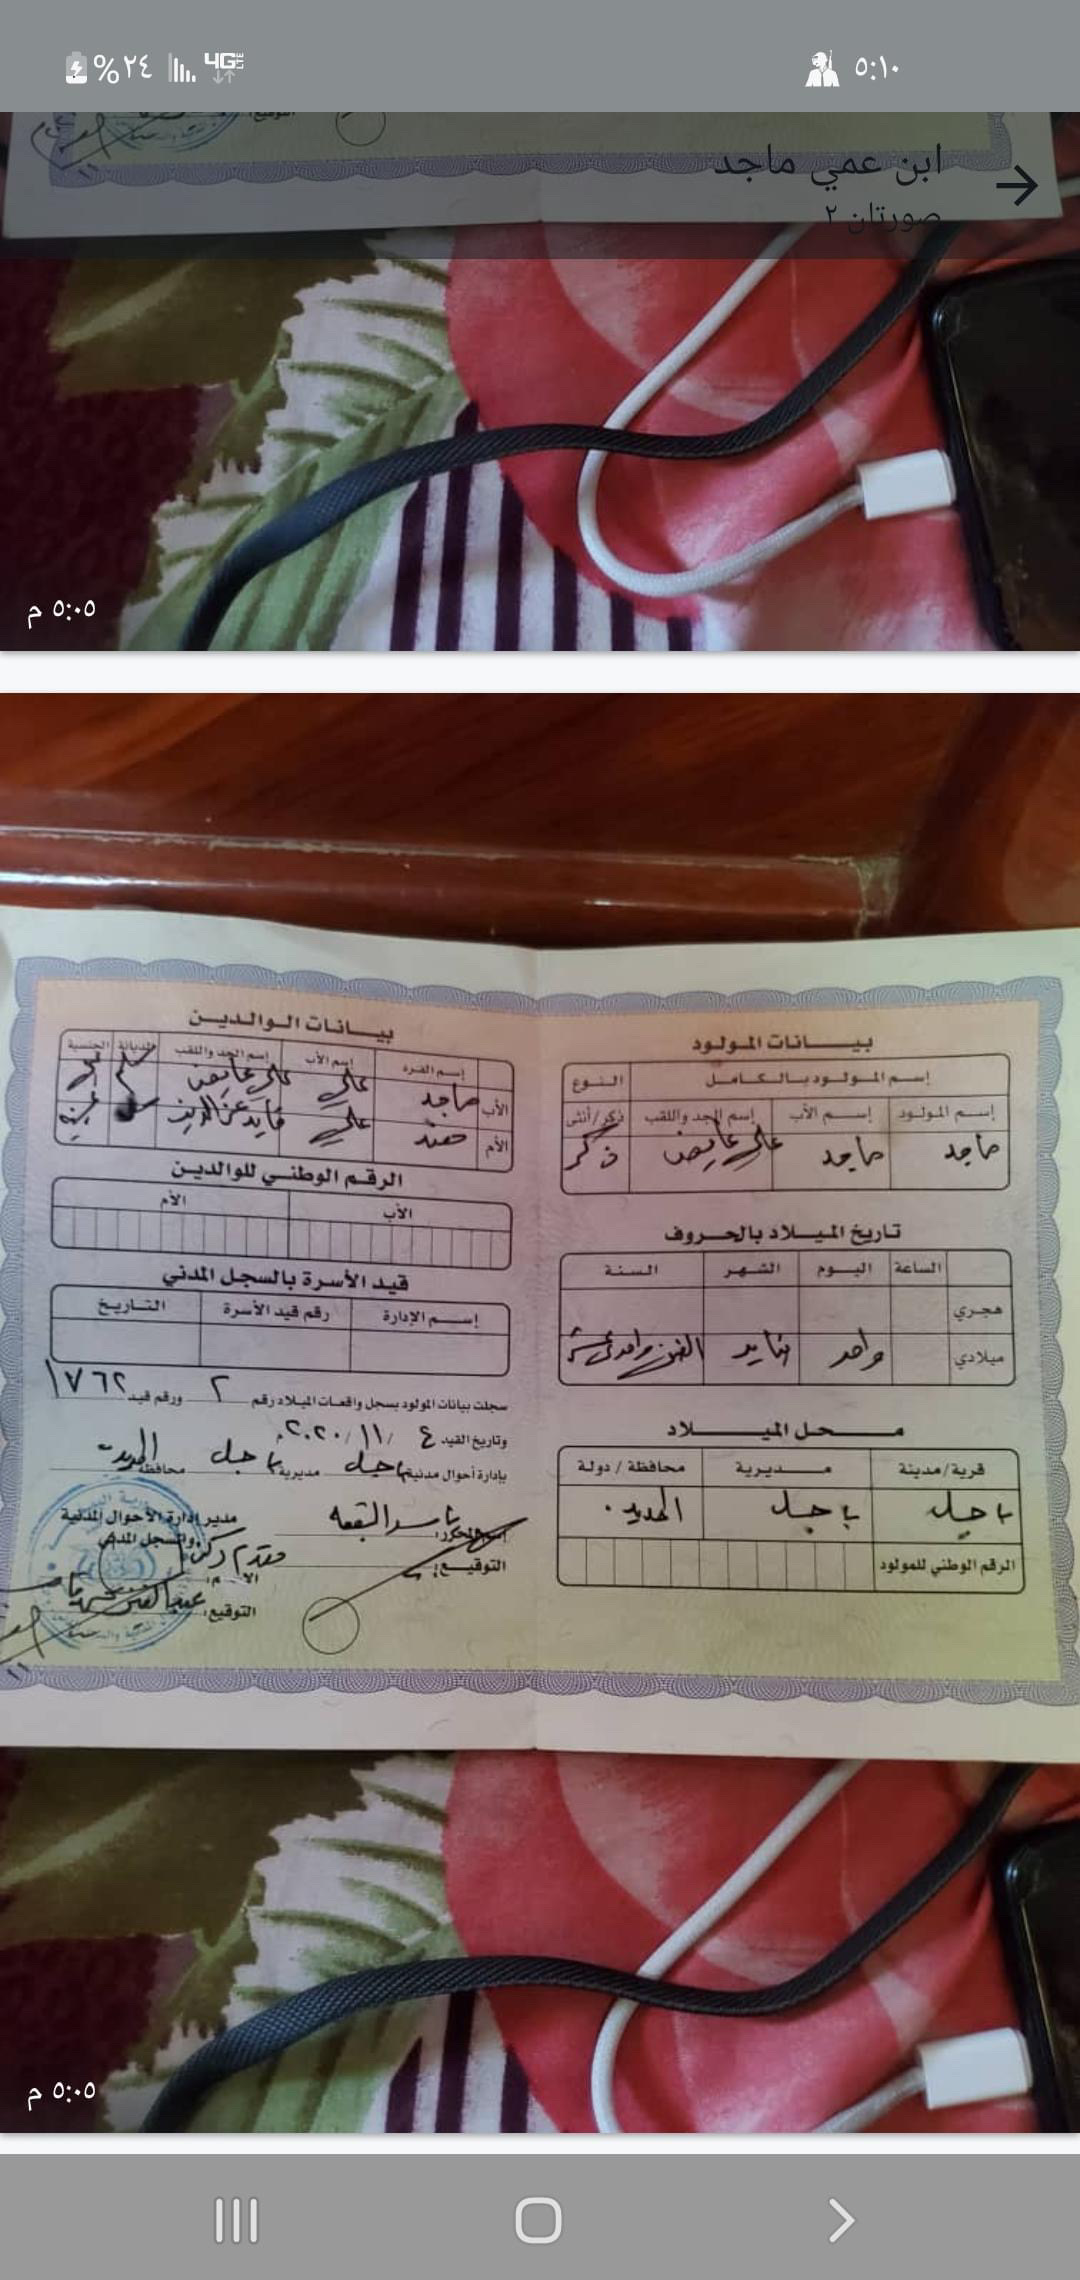 ٥:١٠
%٢٤
4G LTE
ابن عمي ماجد
صورتان ٢
التوقيع:
٥:٠٥ م
بيانات المولود
إسم المولود بالكامل النوع
إسم المولود إسم الأب إسم الجد واللقب ذكر/أنثى
ماجد ماجد علي عايض ذكر
تاريخ الميلاد بالحروف
الساعة اليوم الشهر السنة
هجري
ميلادي واحد يناير الفين واحدى عشر
محل الميلاد
قرية/مدينة مديرية محافظة / دولة
باجل باجل الحديدة
الرقم الوطني للمولود
بيانات الوالدين
إسم الفرد إسم الأب إسم الجد واللقب الديانة الجنسية
الأب ماجد علي علي عايض
الأم هند علي قايد عز الدين
الرقم الوطني للوالدين
الأب الأم
قيد الأسرة بالسجل المدني
إسم الإدارة رقم قيد الأسرة التاريخ
سجلت بيانات المولود بسجل واقعات الميلاد رقم ٢ ورقم قيد ١٧٦٢
وتاريخ القيد ٤ /١١/ ٢٠٢٠م
بإدارة أحوال مدنية باجل مديرية باجل محافظة الحديدة
مدير إدارة الأحوال المدنية
والسجل المدني
التوقيع:
التوقيع:
٥:٠٥ م